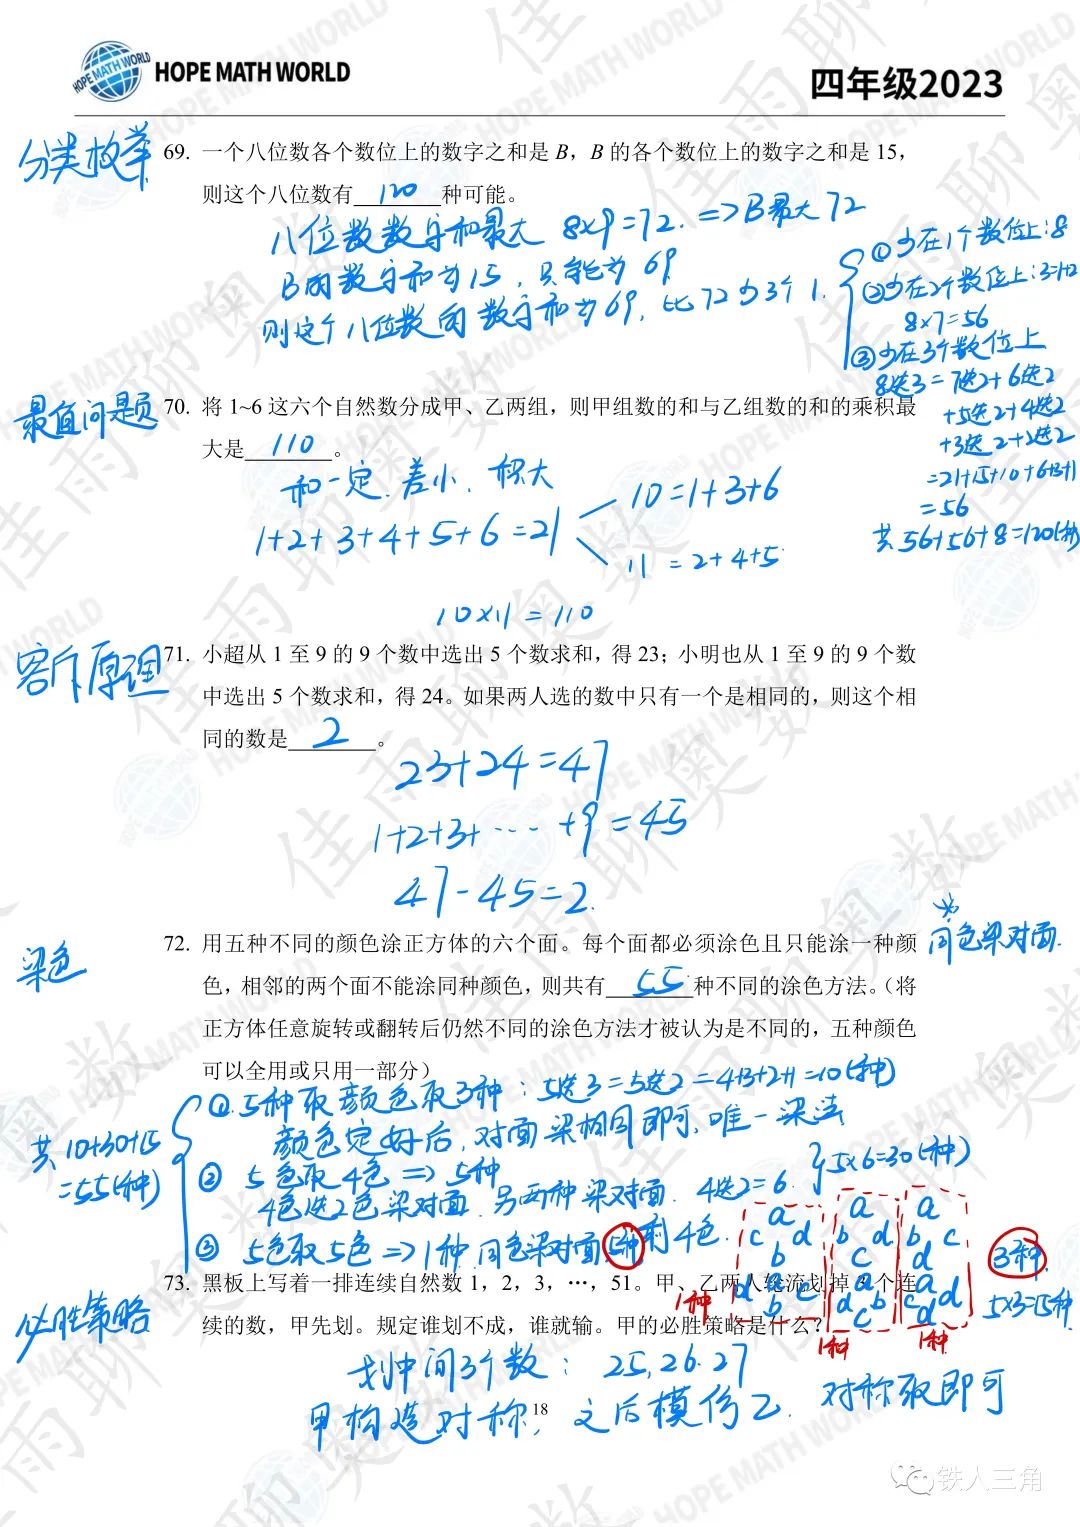 HOPE MATH WORLD
四年级2023
分类枚举
69. 一个八位数各个数位上的数字之和是 B，B 的各个数位上的数字之和是 15，
则这个八位数有 120 种可能。
八位数数字和最大 8×9=72. => B最大72
B的数字和为15，只能为69
则这个八位数的数字和为69，比72少3个1.
①少在1个数位上:8
②少在2个数位上:3=1+2
8×7=56
③少在3个数位上
8选3=7选2+6选2
+5选2+4选2
+3选2+2选2
=21+15+10+6+3+1
=56
共56+56+8=120(种)
最值问题
70. 将 1~6 这六个自然数分成甲、乙两组，则甲组数的和与乙组数的和的乘积最
大是 110 。
和一定，差小，积大
1+2+3+4+5+6=21
10=1+3+6
11=2+4+5
10×11=110
容斥原理
71. 小超从 1 至 9 的 9 个数中选出 5 个数求和，得 23；小明也从 1 至 9 的 9 个数
中选出 5 个数求和，得 24。如果两人选的数中只有一个是相同的，则这个相
同的数是 2 。
23+24=47
1+2+3+…+9=45
47-45=2.
染色
72. 用五种不同的颜色涂正方体的六个面。每个面都必须涂色且只能涂一种颜
色，相邻的两个面不能涂同种颜色，则共有 55 种不同的涂色方法。（将
正方体任意旋转或翻转后仍然不同的涂色方法才被认为是不同的，五种颜色
可以全用或只用一部分）
同色染对面.
①5种取颜色取3种：5选3=5选2=4+3+2+1=10(种)
颜色定好后，对面染相同即可，唯一染法
②5色取4色=>5种
4色选2色染对面，另两种染对面. 4选2=6.
5×6=30(种)
③5色取5色=>1种同色染对面5种剩4色.
共10+30+15
=55(种)
a
c d
b
a
b d
c
a
b c
d
d a c
b
a
d b
c
a
c d
d
1种
1种
1种
3种
5×3=15种
必胜策略
73. 黑板上写着一排连续自然数 1，2，3，…，51。甲、乙两人轮流划掉 3 个连
续的数，甲先划。规定谁划不成，谁就输。甲的必胜策略是什么？
划中间3个数：25,26.27
甲构造对称，之后模仿乙. 对称取即可
18
铁人三角
佳雨聊奥数